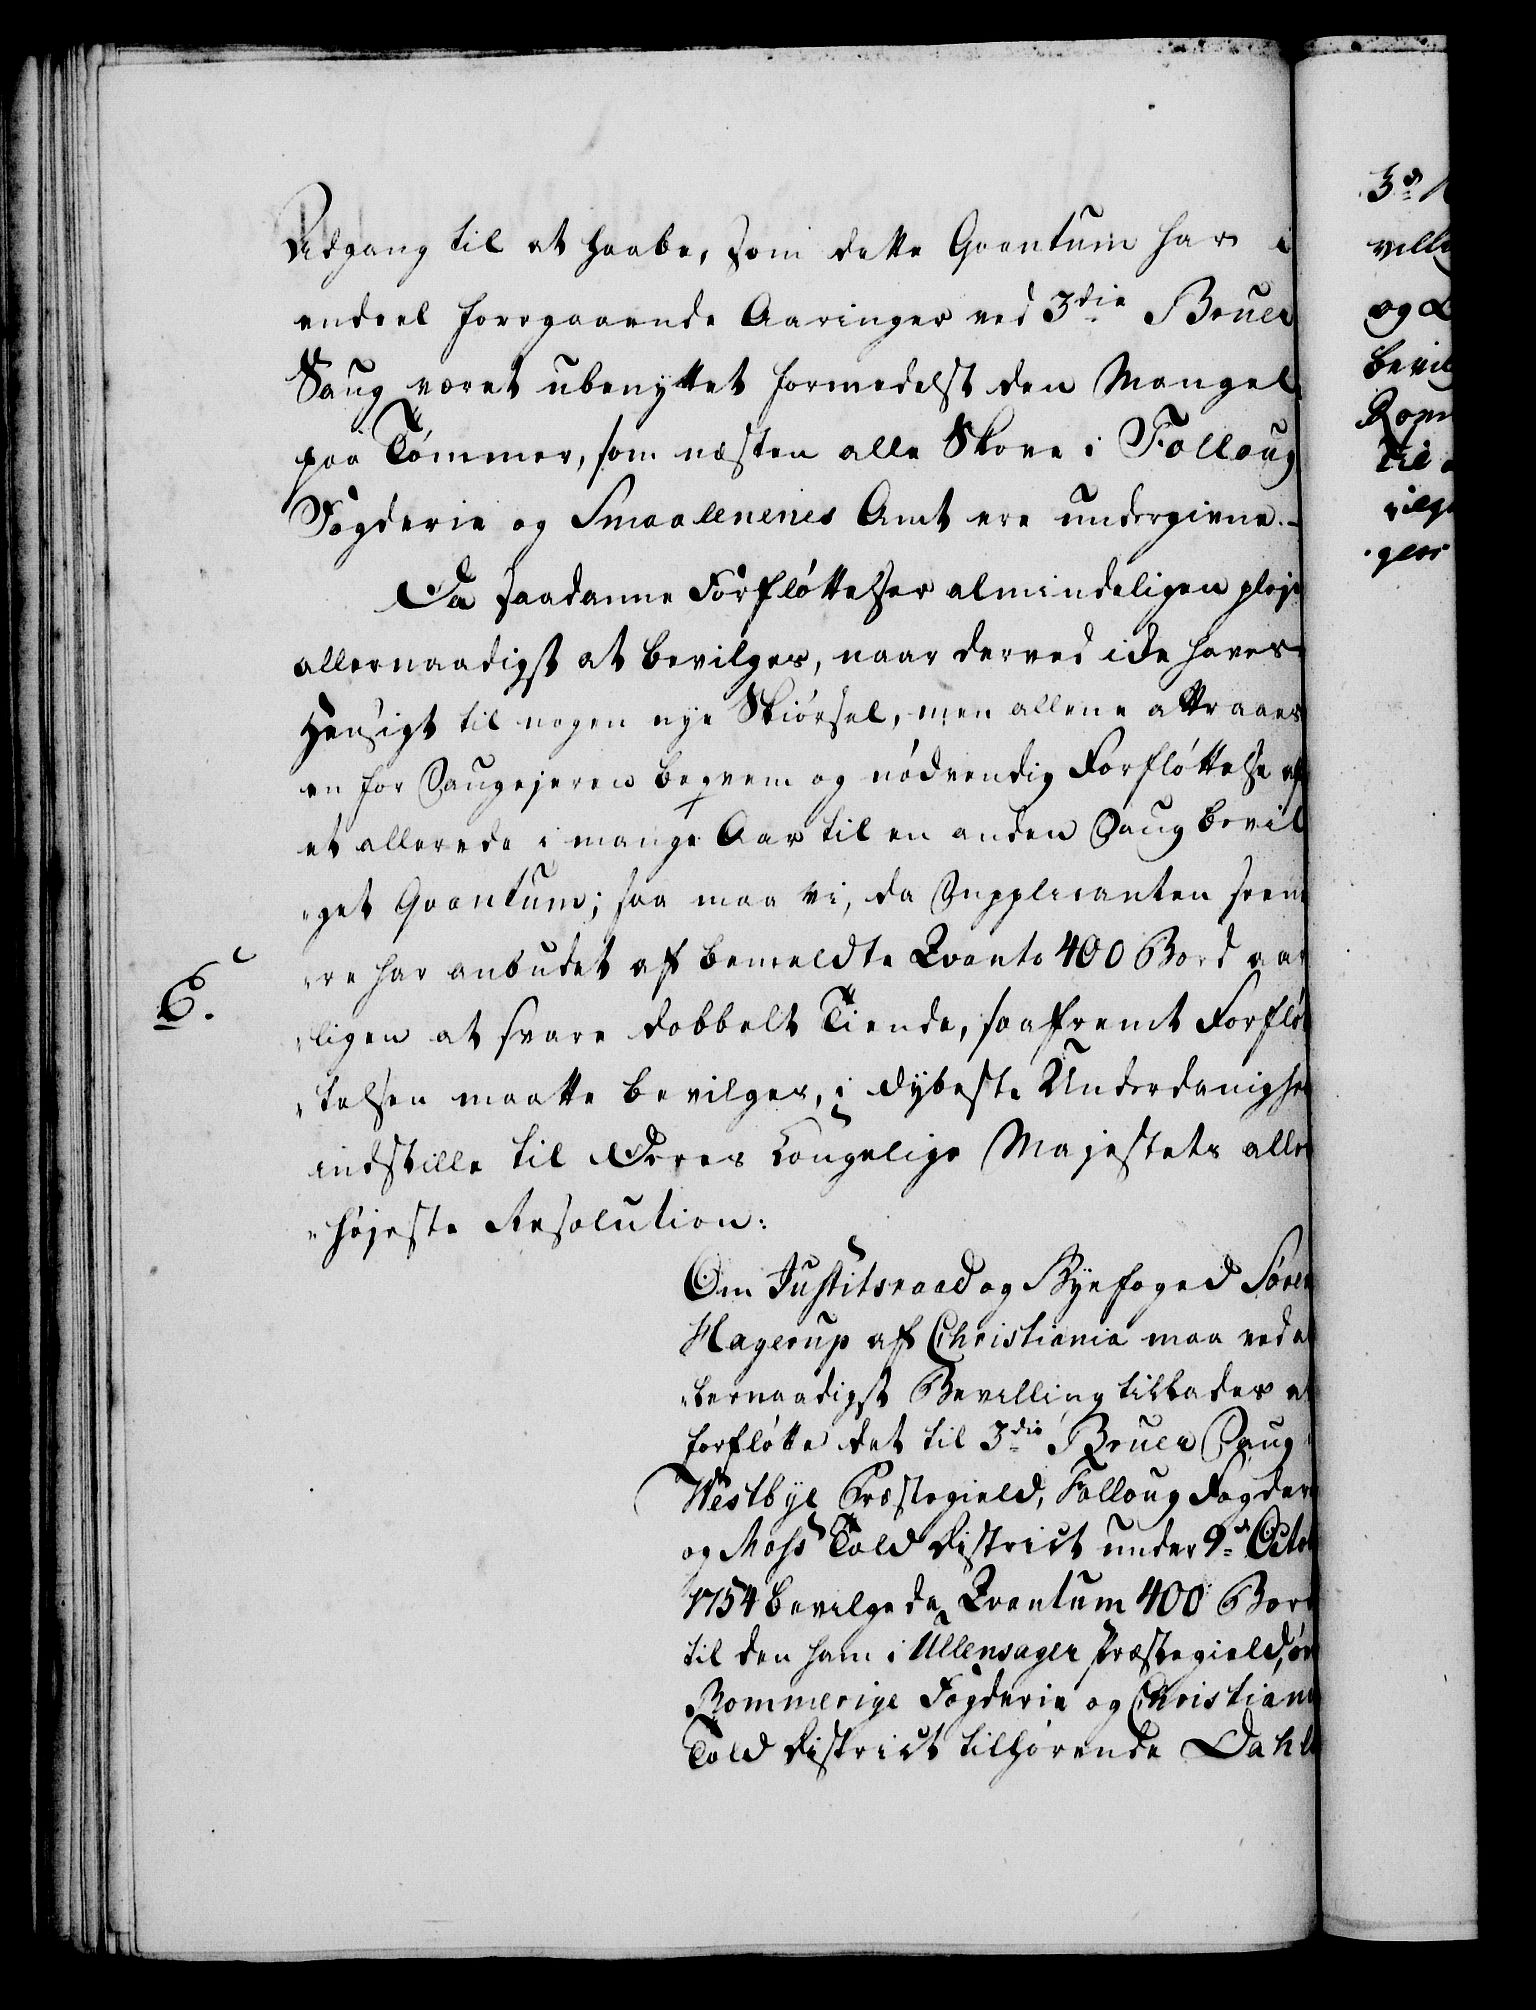 Udgang til at haabe, som dette Qvantum har i
endeel foregaaende Aaringer ved 3die Bruer
Saug været ubenyttet formedelst den Mangel
paa Tømmer, som næsten alle Skove i Folloug
Fogderie og Smaalenenes Amt ere undergivne.-
Da saadanne Forfløttelser almindeligen pleje
allernaadigst at bevilges, naar derved icke haves
Hensigt til nogen nye Skiørsel, men allene attraaes
en for Saugejeren beqvem og nødvendig Forfløttelse af
et allerede i mange Aar til en anden Saug bevil
"get Qvantum; saa maa vi, da Supplicanten frem
"re har anbudet af bemeldte Qvanto 400 Bord aar
6.
"ligen at svare dobbelt Tiende, saafremt Forfløt
"telsen maatte bevilges, i dybeste Underdanighed
indstille til Deres Kongelige Majestets aller
"højeste Resolution:
Om Justitsraad og Byefoged Søren
Hagerup af Christiania maa ved al
"lernaadigst Bevilling tillades at
forfløtte det til 3die Bruer Saug
Westbye Præstegield, Folloug Fogderi
og Moss Told District under 9de Octob
1754 bevilgede Qvantum 400 Bord
til den ham i Ullensager Præstegield, øv
Rommerige Fogderie og Christiania
Told District tilhørende Dahl
3de
ville
og
bevil
Rom
til
vilge
ger